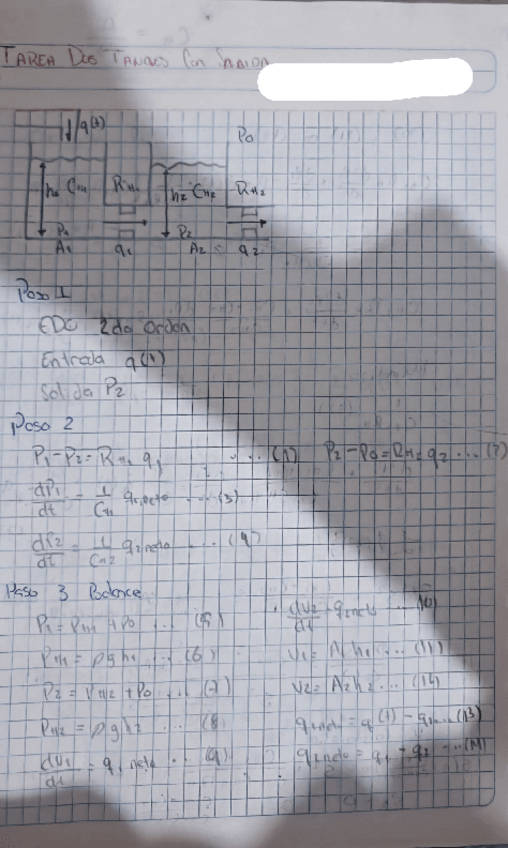 TAREA DOS TANQUES CON SALIDA
q(t)
P0
h1 CH1 RH1 h2 CH2 RH2
P1 P2
A1 q1 A2 q2
Paso 1
EDO 2do Orden
Entrada q(t)
Salida P2
Paso 2
P1-P2 = RH1 q1 ... (1) P2-P0 = RH2 q2 ... (2)
dP1/dt = 1/CH1 q1neto ... (3)
dP2/dt = 1/CH2 q2neto ... (4)
Paso 3 Balance
P1 = PH1 + P0 ... (5)
PH1 = ρgh1 ... (6)
P2 = PH2 + P0 ... (7)
PH2 = ρgh2 ... (8)
dV1/dt = q1neto ... (9)
dV2/dt = q2neto ... (10)
V1 = A1h1 ... (11)
V2 = A2h2 ... (12)
q1neto = q(t) - q1 ... (13)
q2neto = q1 - q2 ... (14)